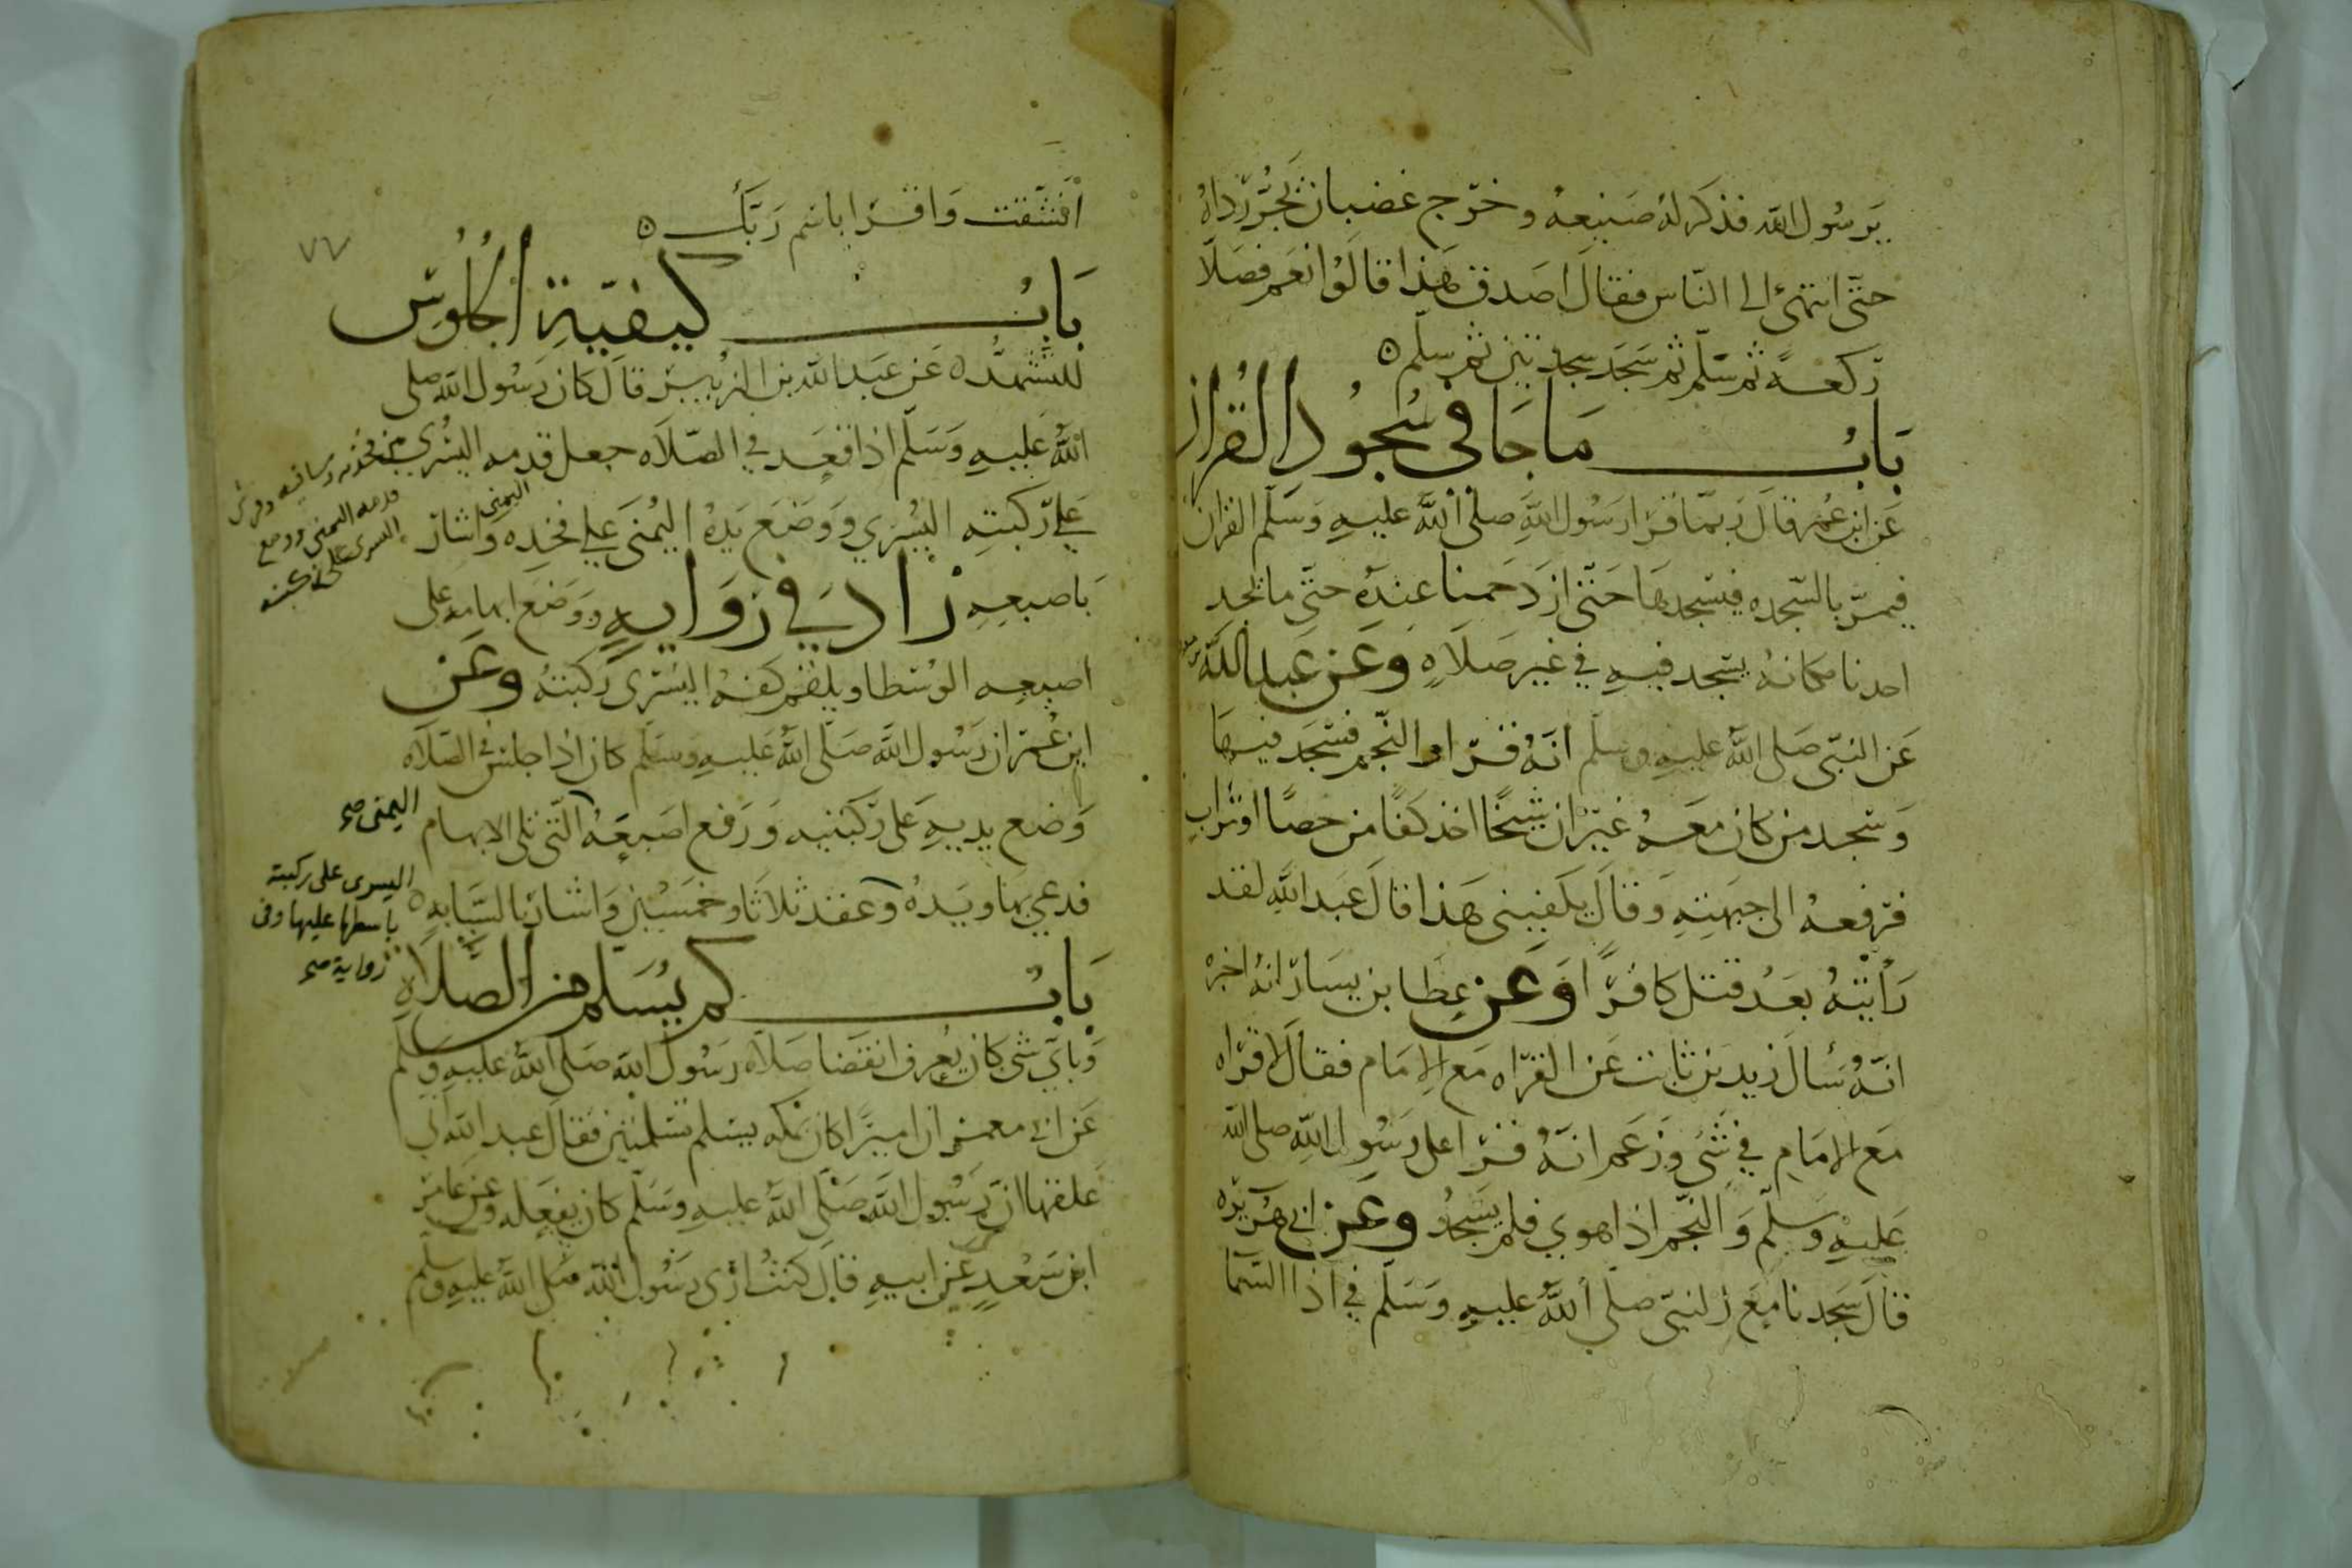 يرسول الله فذكر له صنيعه وخرج غضبان يجر رداه
حتى انتهى الى الناس فقال اصدق هذا قالوا نعم فصلا
ركعة ثم سلم ثم سجد سجدتين ثم سلم ه
باب ما جا في سجود القران
عن ابن عمر قال ربما قرا رسول الله صلى الله عليه وسلم القران
فيمر بالسجده فيسجد بها حتى ازدحمنا عنده حتى ما يجد
احدنا مكانه يسجد فيه في غير صلاه وعن عبد الله
عن النبي صلى الله عليه وسلم انه قرا والنجم فسجد فيها
وسجد من كان معه غير ان شيخا اخذ كفا من حصا او تراب
فرفعه الى جبهته وقال يكفيني هذا قال عبد الله لقد
رأيته بعد قتل كافرا وعن عطا بن يسار انه اخبره
انه سأل زيد بن ثابت عن القراه مع الامام فقال لا قراه
مع الامام في شي وزعم انه قرا على رسول الله صلى الله
عليه وسلم والنجم اذا هوي فلم يسجد وعن ابي هريره
قال سجدنا مع النبي صلى الله عليه وسلم في اذا السما
انشقت واقرا باسم ربك ه
٧٧
باب كيفية الجلوس
للتشهد ه عن عبد الله بن الزبير قال كان رسول الله صلى
الله عليه وسلم اذا قعد في الصلاه جعل قدمه اليسري بين فخذه وساقه وفرش
قدمه اليمنى ووضع
اليسرى على ركبته
اليمنى
على ركبته اليسري ووضع يده اليمنى على فخده واشار
باصبعه زاد في روايه ووضع ابهامه على
اصبعه الوسطا ويلقم كفه اليسرى ركبته وعن
ابن عمر ان رسول الله صلى الله عليه وسلم كان اذا جلس في الصلاه
وضع يديه على ركبتيه ورفع اصبعه التي تلى الابهام
اليمنى صح
فدعي بها ويده وعقد ثلاثا وخمسين واشار بالسبابه ه
اليسرى على ركبته
باسطها عليها وفى
رواية صح
باب كم يسلم من الصلاه
وباي شى كان يعرف انقضا صلاه رسول الله صلى الله عليه وسلم
عن ابي معمر ان اميرا كان بمكه يسلم تسلمتين فقال عبد الله اني
علقها ان رسول الله صلى الله عليه وسلم كان يفعله وعن عامر
ابن سعد عن ابيه قال كنت ارى رسول الله صلى الله عليه وسلم